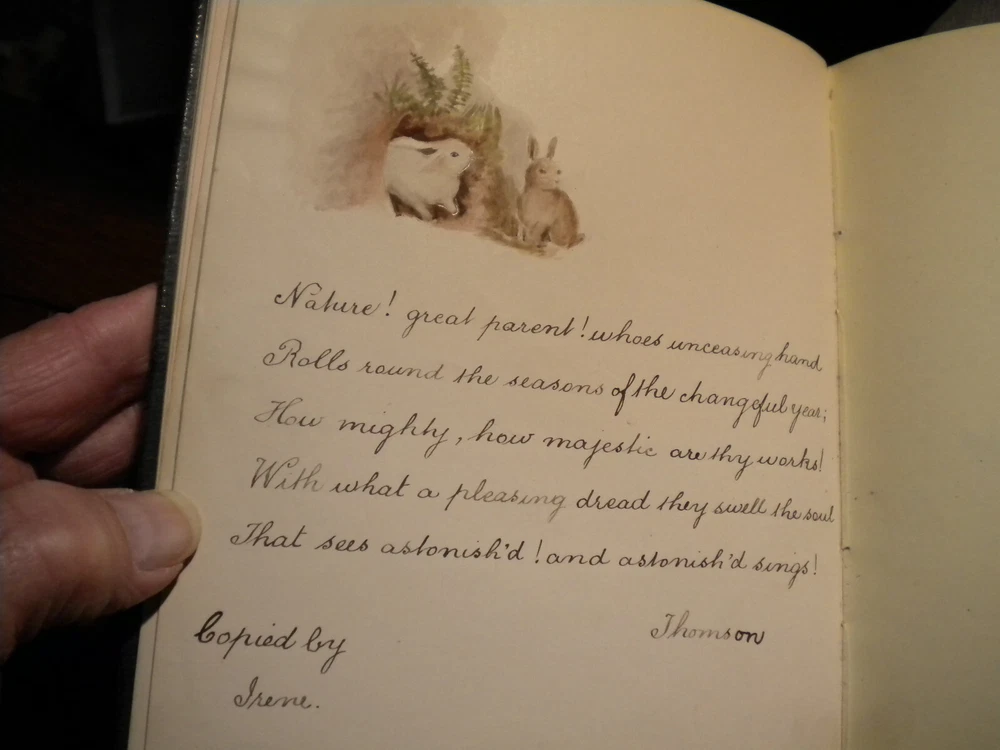 Nature! great parent! whoes unceasing hand
Rolls round the seasons of the changeful year;
How mighty, how majestic are thy works!
With what a pleasing dread they swell the soul
That sees astonish'd! and astonish'd sings!
Thomson
Copied by
Irene.